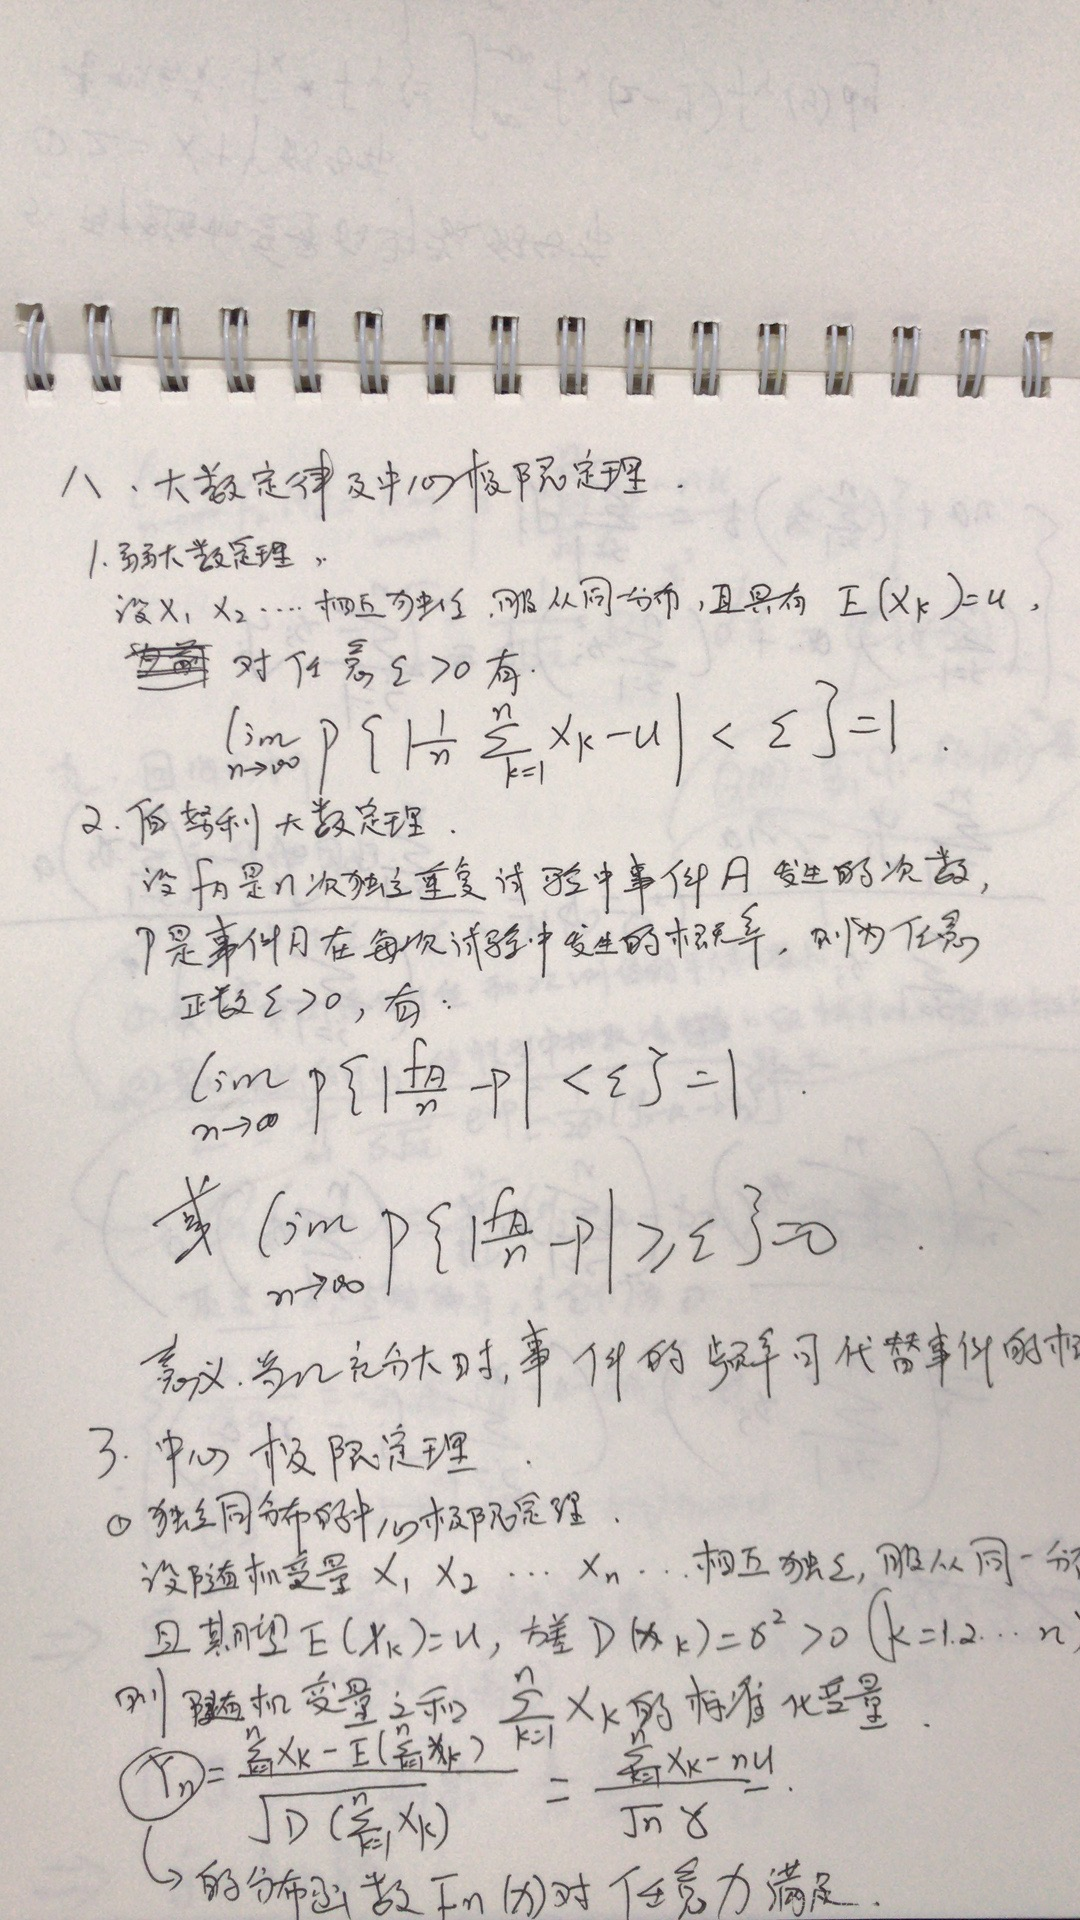 八、大数定律及中心极限定理.
1. 弱大数定理.
设X₁ X₂ ···· 相互独立,服从同一分布,且具有 E(Xₖ)=u,
对任意ε>0有.
lim n→∞ P{|1/n Σ(k=1→n) Xₖ-u|<ε}=1.
2. 伯努利大数定理.
设fA是n次独立重复试验中事件A发生的次数,
P是事件A在每次试验中发生的概率,则为任意
正数ε>0,有:
lim n→∞ P{|fA/n-P|<ε}=1.
或 lim n→∞ P{|fA/n-P|≥ε}=0.
意义.当n充分大时,事件的频率可代替事件的
3. 中心极限定理.
① 独立同分布的中心极限定理.
设随机变量 X₁ X₂ ··· Xₙ ···相互独立,服从同一分
且期望E(Xₖ)=u,方差D(Xₖ)=σ²>0(k=1.2...n)
则随机变量之和 Σ(k=1→n) Xₖ的标准化变量.
Yₙ= (Σ(k=1→n) Xₖ-E(Σ(k=1→n) Xₖ))/√D(Σ(k=1→n) Xₖ) = (Σ(k=1→n) Xₖ-nu)/(√n σ).
的分布函数Fn(x)对任意x满足.